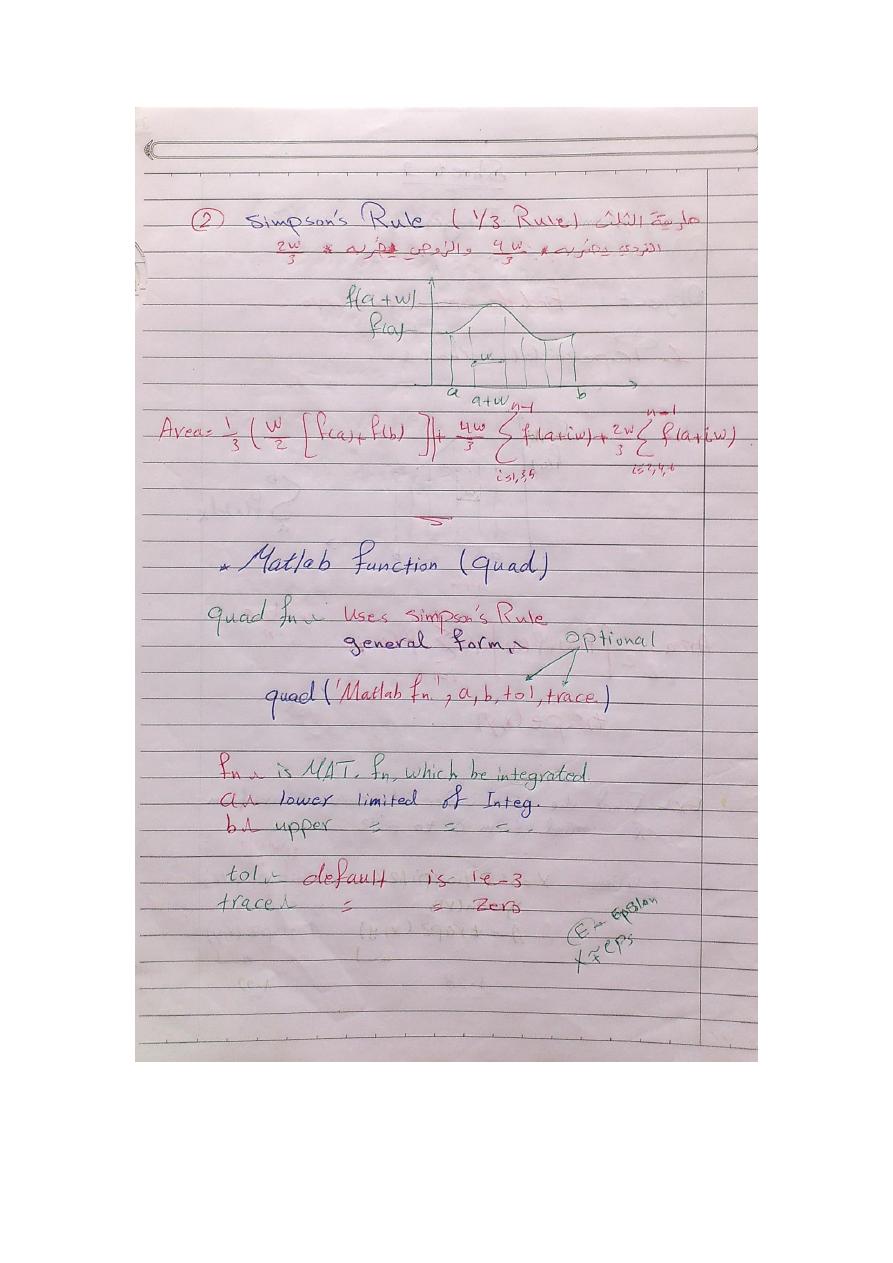 ② Simpson's Rule ( 1/3 Rule) طريقة الثلث
الفردي يضربه * 4w/3 والزوجي يضربه * 2w/3
f(a+w)
f(a)
w
a
a+w
b
Area = 1/3 ( w/2 [ f(a)+f(b) ] ) + 4w/3 Σ_{i=1,3,5}^{n-1} f(a+iw) + 2w/3 Σ_{i=2,4,6}^{n-1} f(a+iw)
* Matlab function (quad)
quad fn : Uses Simpson's Rule
general form :
optional
quad ('Matlab fn', a, b, tol, trace)
fn : is MAT. fn, which be integrated
a : lower limited of Integ.
b : upper = = = .
tol : default is 1e-3
trace : = = Zero
E : Epsilon
eps